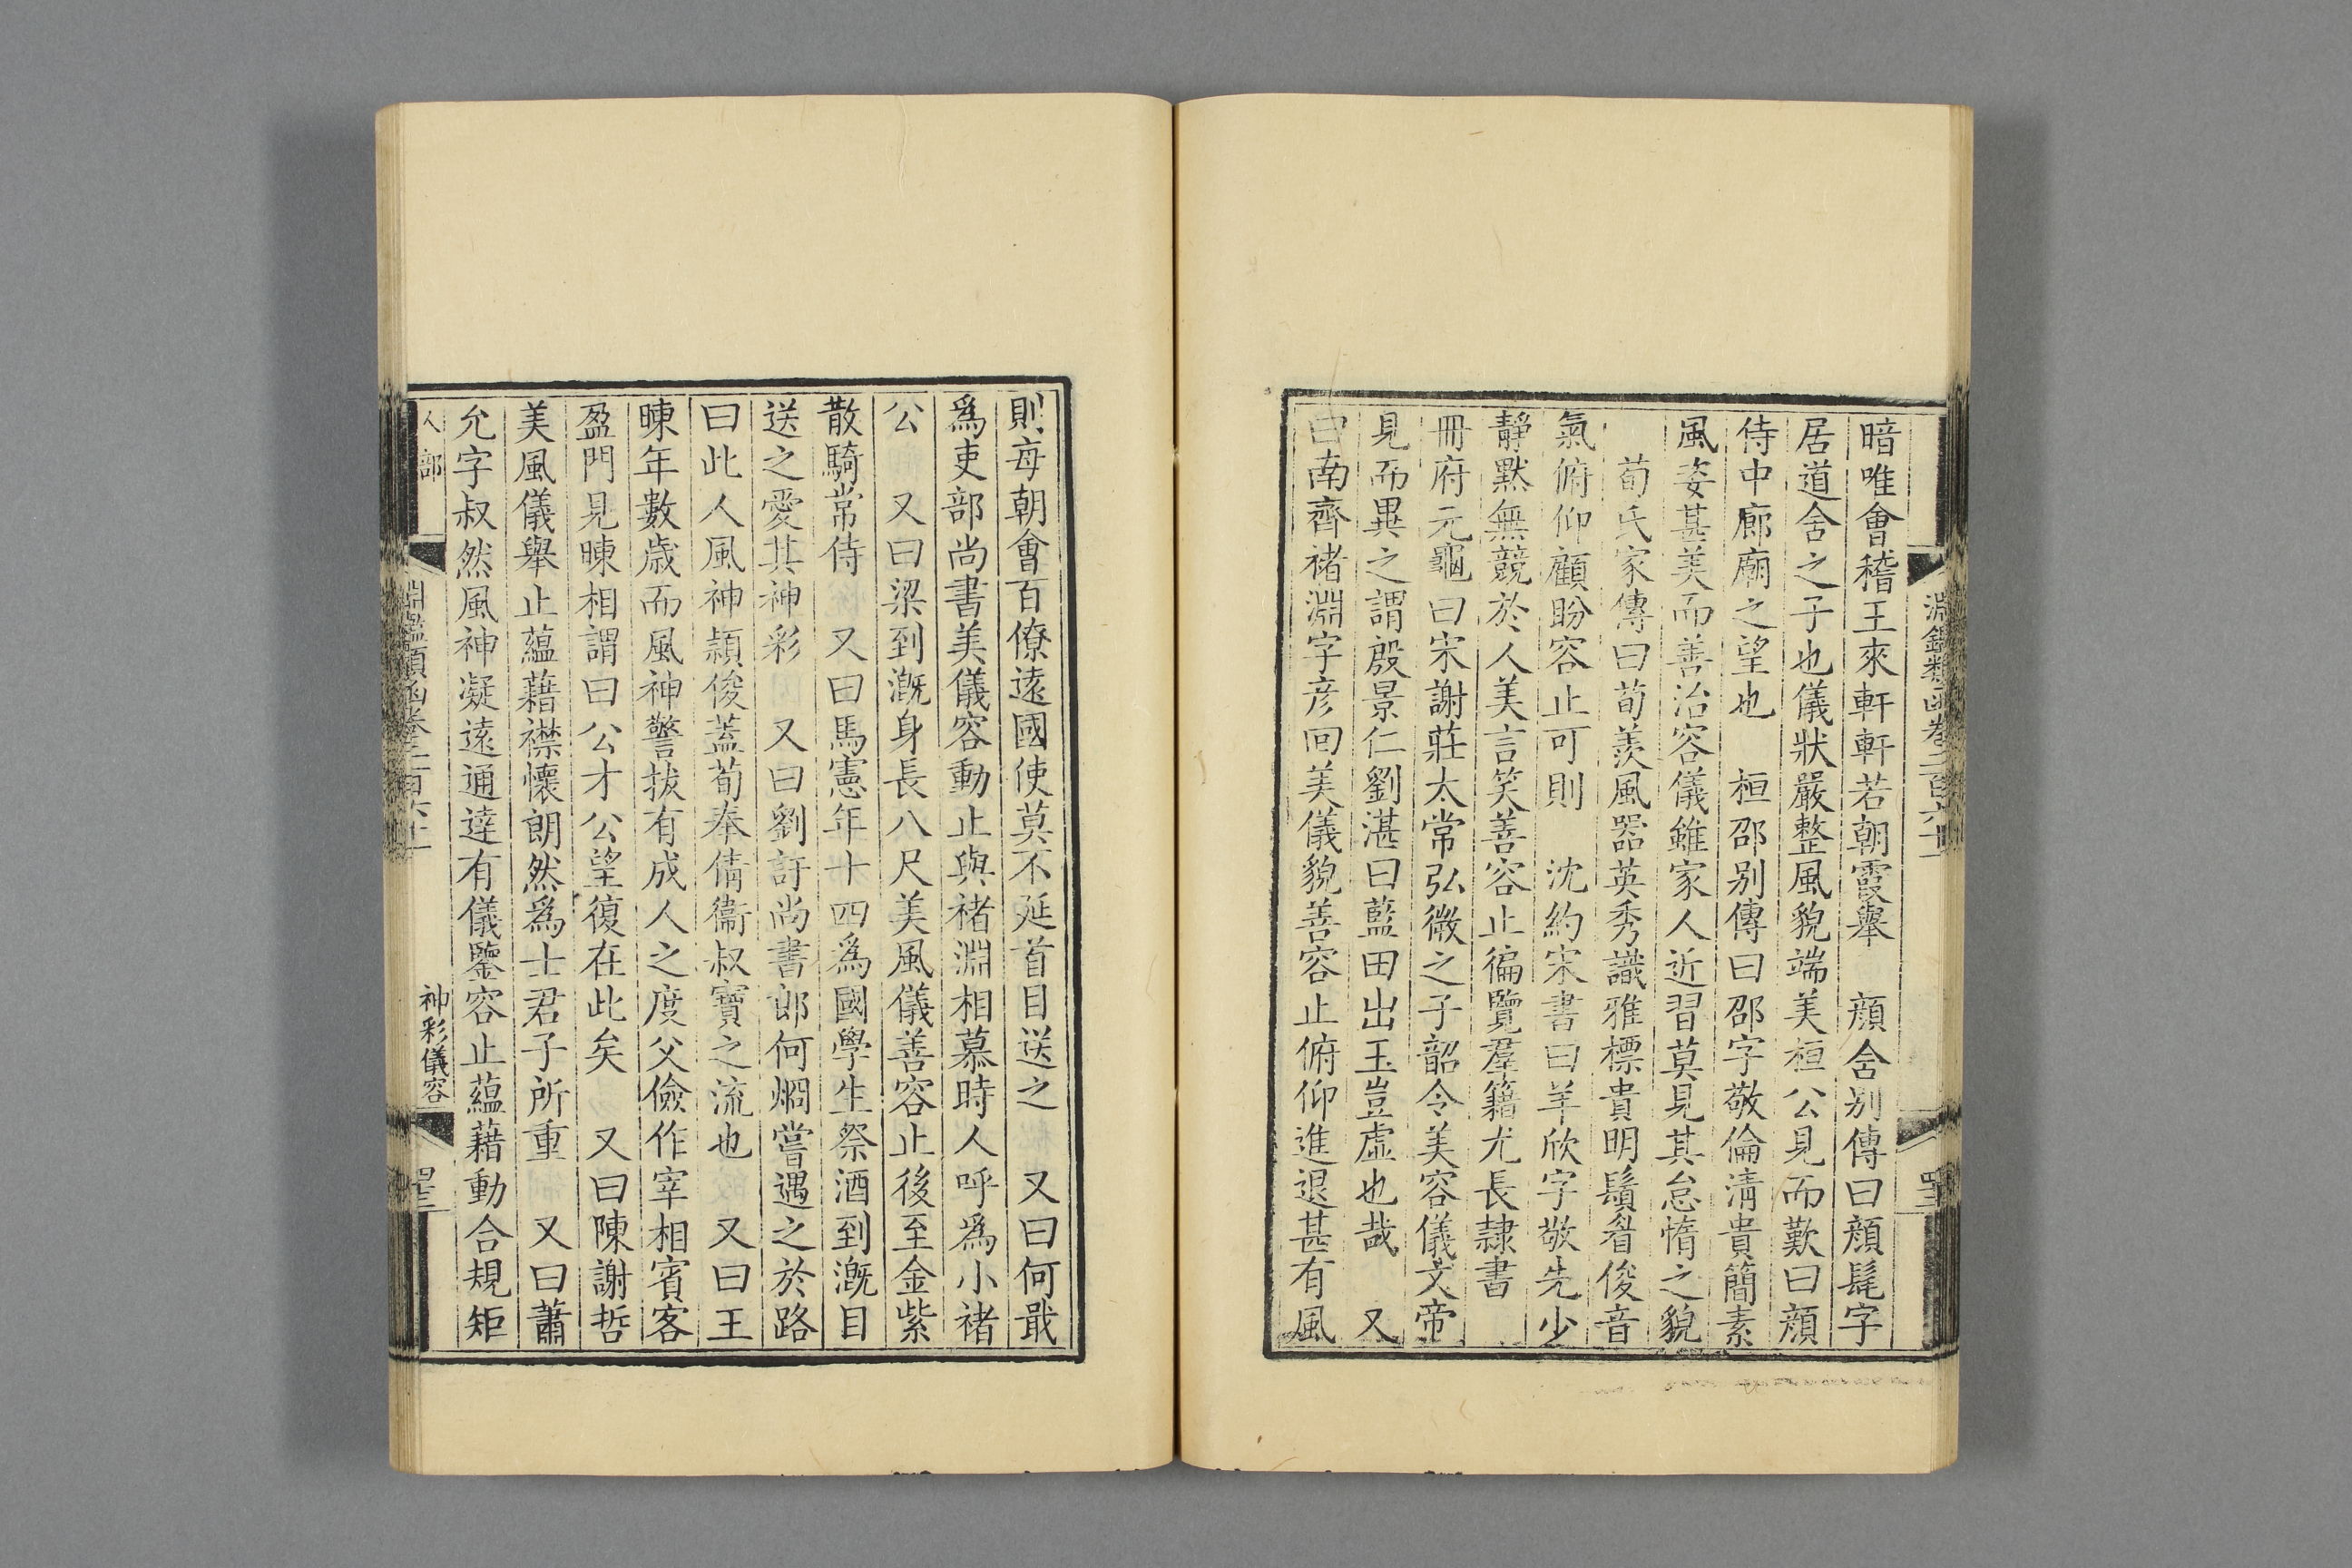 暗唯會稽王來軒軒若朝霞舉　顏含別傳曰顏髦字
居道含之子也儀狀嚴整風貌端美桓公見而歎曰顏
侍中廊廟之望也　桓邵別傳曰邵字敬倫清貴簡素
風姿甚美而善治容儀雖家人近習莫見其怠惰之貌
荀氏家傳曰荀羨風器英秀識雅標貴明鬚眉俊音
氣俯仰顧盼容止可則　沈約宋書曰羊欣字敬先少
靜默無競於人美言笑善容止徧覽羣籍尤長隸書
冊府元龜曰宋謝莊太常弘微之子韶令美容儀文帝
見而異之謂殷景仁劉湛曰藍田出玉豈虛也哉　又
曰南齊褚淵字彥回美儀貌善容止俯仰進退甚有風
則每朝會百僚遠國使莫不延首目送之　又曰何戢
爲吏部尚書美儀容動止與褚淵相慕時人呼爲小褚
公　又曰梁到漑身長八尺美風儀善容止後至金紫
散騎常侍　又曰馬憲年十四爲國學生祭酒到漑目
送之愛其神彩　又曰劉訏尚書郎何烱嘗遇之於路
曰此人風神穎俊蓋荀奉倩衞叔寶之流也　又曰王
暕年數歲而風神警拔有成人之度父儉作宰相賓客
盈門見暕相謂曰公才公望復在此矣　又曰陳謝哲
美風儀舉止蘊藉襟懷朗然爲士君子所重　又曰蕭
允字叔然風神凝遠通達有儀鑒容止蘊藉動合規矩
人部
神彩儀容